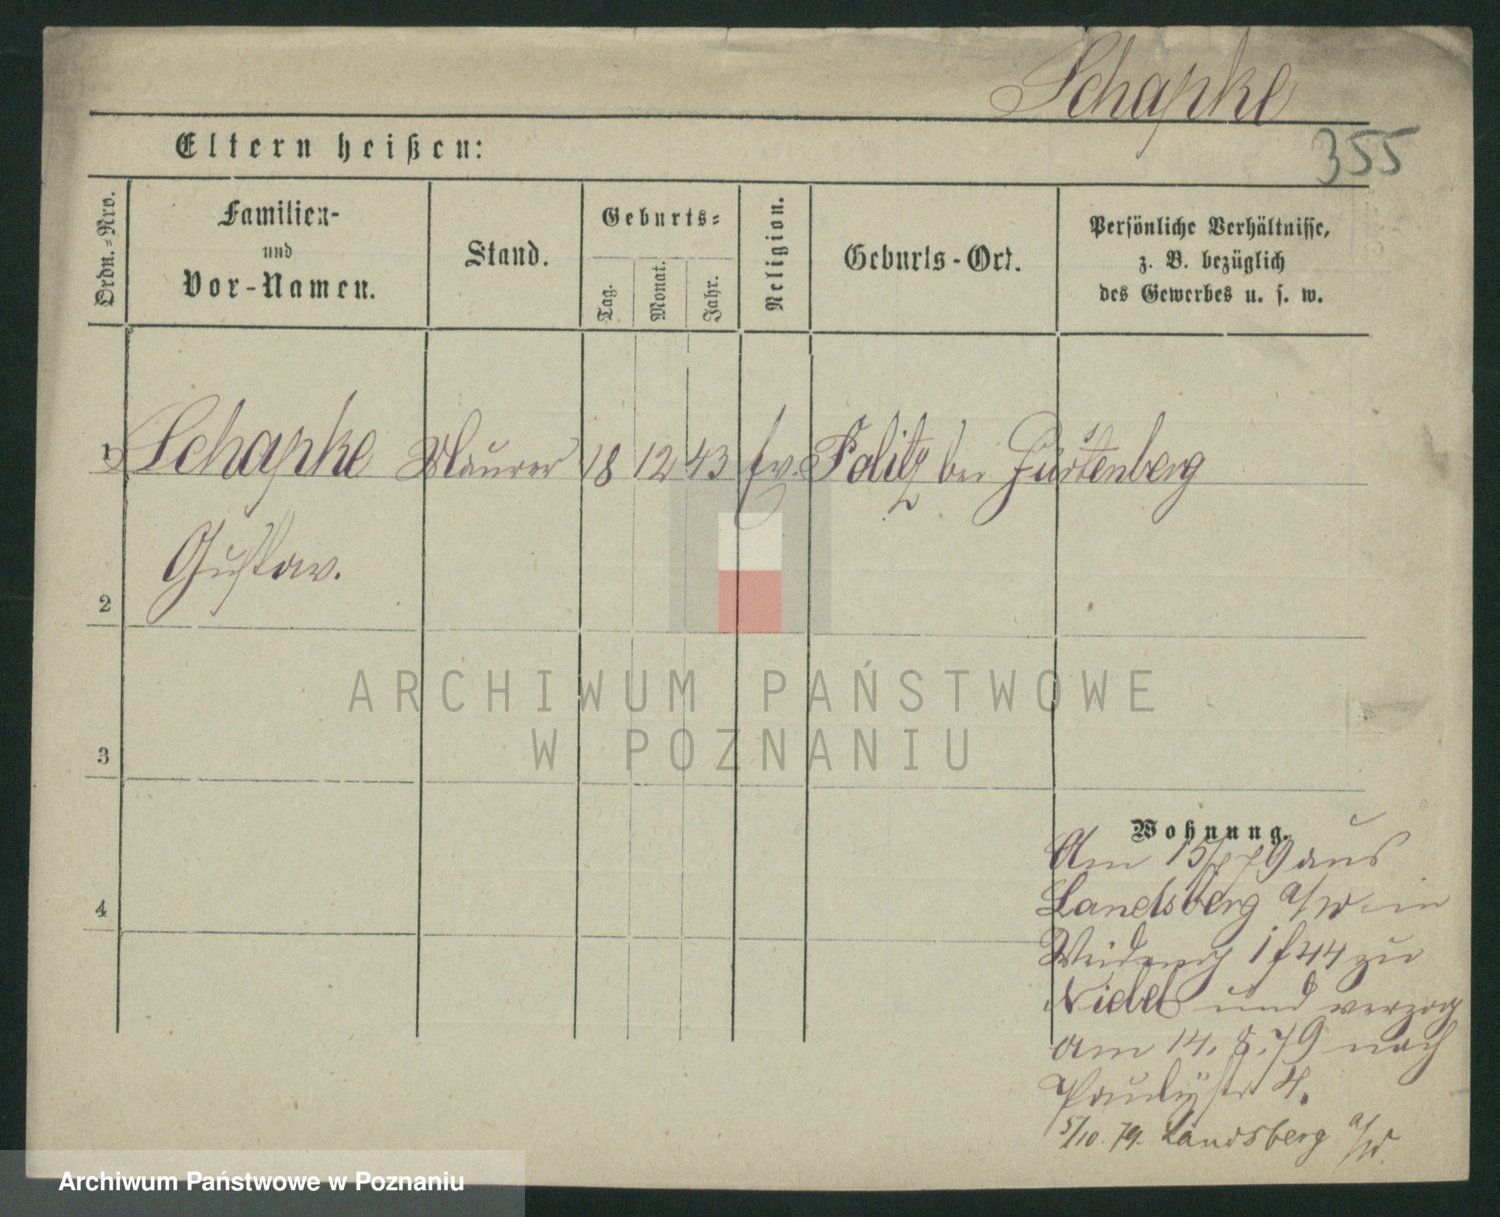 Schapke
355
Eltern heißen:
Ordn.-Nro.
Familien-
und
Vor-Namen.
Stand.
Geburts-
Tag.
Monat.
Jahr.
Religion.
Geburts-Ort.
Persönliche Verhältnisse,
z. B. bezüglich
des Gewerbes u. s. w.
1 Schapke Maurer 18 12 43 ev. bei Fürstenberg
Gustav.
2
ARCHIWUM PAŃSTWOWE
W POZNANIU
3
Wohnung.
Am 15/7 79 aus
Landsberg a/W in
4
44 zu
und verzog
am 14. 8. 79 nach
4.
5/10. 79. Landsberg a/W.
Archiwum Państwowe w Poznaniu